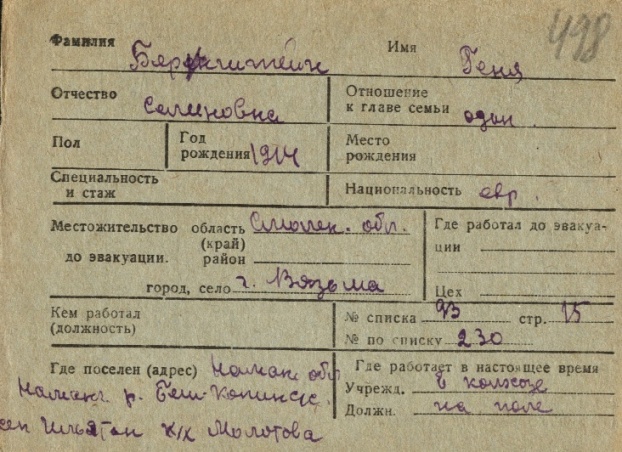 498
Фамилия Бернштейн Имя Геня
Отчество Семеновна Отношение к главе семьи один
Пол Год рождения 1914 Место рождения
Специальность и стаж Национальность евр.
Местожительство область Смолен. обл. Где работал до эвакуа-
(край) ции
до эвакуации. район
город, село г. Вязьма Цех
Кем работал № списка 93 стр. 15
(должность) № по списку 230
Где поселен (адрес) Наман. обл Где работает в настоящее время
Наманг. р. Учрежд. в колхозе
Должн. на поле
к/х Молотова